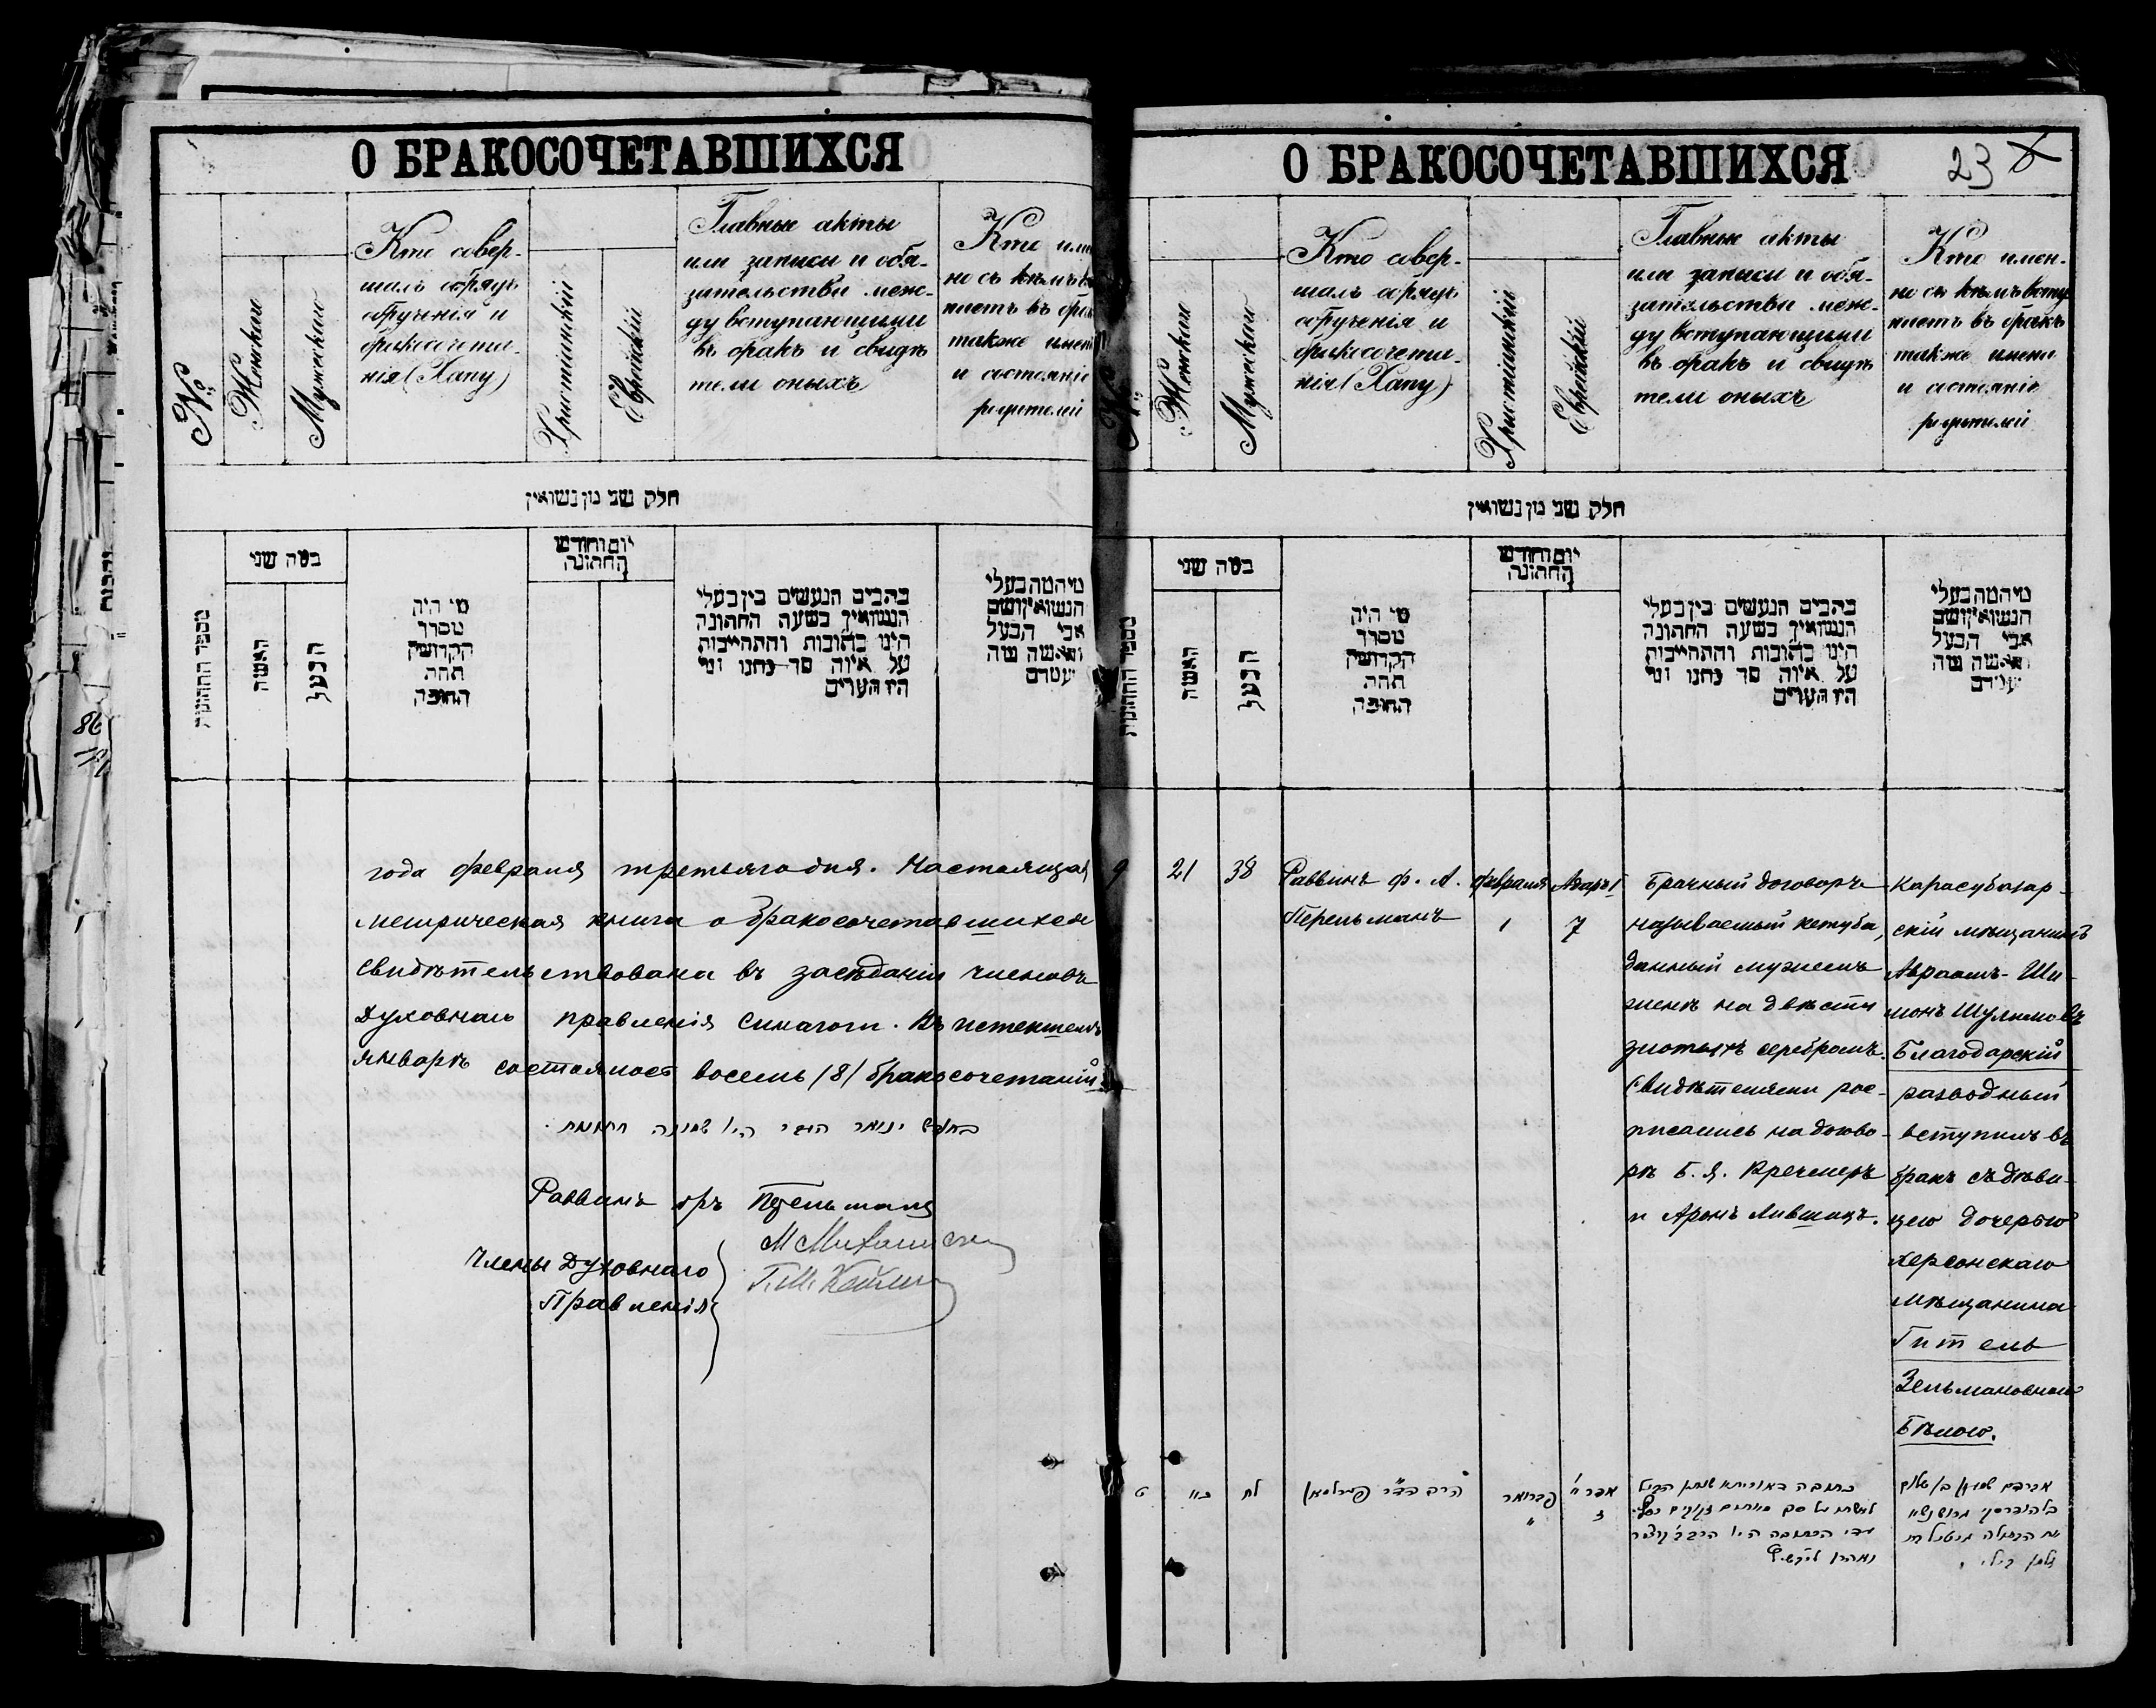 О БРАКОСОЧЕТАВШИХСЯ
№
Женскаго
Мужескаго
Кто совер-
шалъ обрядъ
обрученія и
бракосочета-
нія (Хапу)
Христіанскій
Еврейскій
Главные акты
или записи и обя-
зательства меж-
ду вступающими
въ бракъ и свидѣ
тели оныхъ
Кто имен
но съ кѣмъ
паетъ въ
также имен
и состояніе
родителей
חלק שני מן נשואין
מספר החתונות
כמה שני
האשה
הבעל
מי היה
מסדר
הקדושין
תחת
החופה
יום וחודש
החתונה
כתבים הנעשים בין בעלי
הנשואין בשעת החתונה
היינו כתובות והתחייבות
על איזה סך נתנו ומי
היו העדים
מי המה בעלי
הנשואין ושם
אבי הבעל
והאשה ומה
86
года февраля третьяго дня. Настоящая
метрическая книга о бракосочетавшихся
свидѣтельствована въ засѣданіи членовъ
Духовнаго правленія синагоги. Въ истекшемъ
январѣ состоялось восемь /8/ бракосочетаній.
בחדש ינואר היו שמונה חתונות
Раввинъ др Перельманъ
Члены Духовнаго
Правленія
О БРАКОСОЧЕТАВШИХСЯ
23
Женскаго
Мужескаго
Кто совер-
шалъ обрядъ
обрученія и
бракосочета-
нія (Хапу)
Христіанскій
Еврейскій
Главные акты
или записи и обя-
зательства меж-
ду вступающими
въ бракъ и свидѣ
тели оныхъ
Кто имен-
но съ кѣмъ всту
паетъ въ бракъ
также имена
и состояніе
родителей
חלק שני מן נשואין
מספר החתונות
כמה שני
האשה
הבעל
מי היה
מסדר
הקדושין
תחת
החופה
יום וחודש
החתונה
כתבים הנעשים בין בעלי
הנשואין בשעת החתונה
היינו כתובות והתחייבות
על איזה סך נתנו ומי
היו העדים
מי המה בעלי
הנשואין ושם
אבי הבעל
והאשה ומה
9
21
38
Раввинъ Ф. А.
Перельманъ
февраля
1
Адаръ I
7
Брачный договоръ
называемый кетуба,
данный мужемъ
женѣ на двѣсти
злотыхъ серебромъ.
Свидѣтелями рос-
писались на догово-
рѣ Б. Я. Кречмеръ
и Аронъ Лившицъ.
Карасубазар-
скій мѣщанинъ
Авраамъ-Ши-
монъ Шулимовъ
Благодарскій
разводный
вступилъ въ
бракъ съ дѣви-
цею дочерью
херсонскаго
мѣщанина
Гитель
Зельмановною
Бѣлою.
ט
כא
לח
הרב פערלמאן
פברואר
אדר א'
ז
אברהם שמעון בן שלום